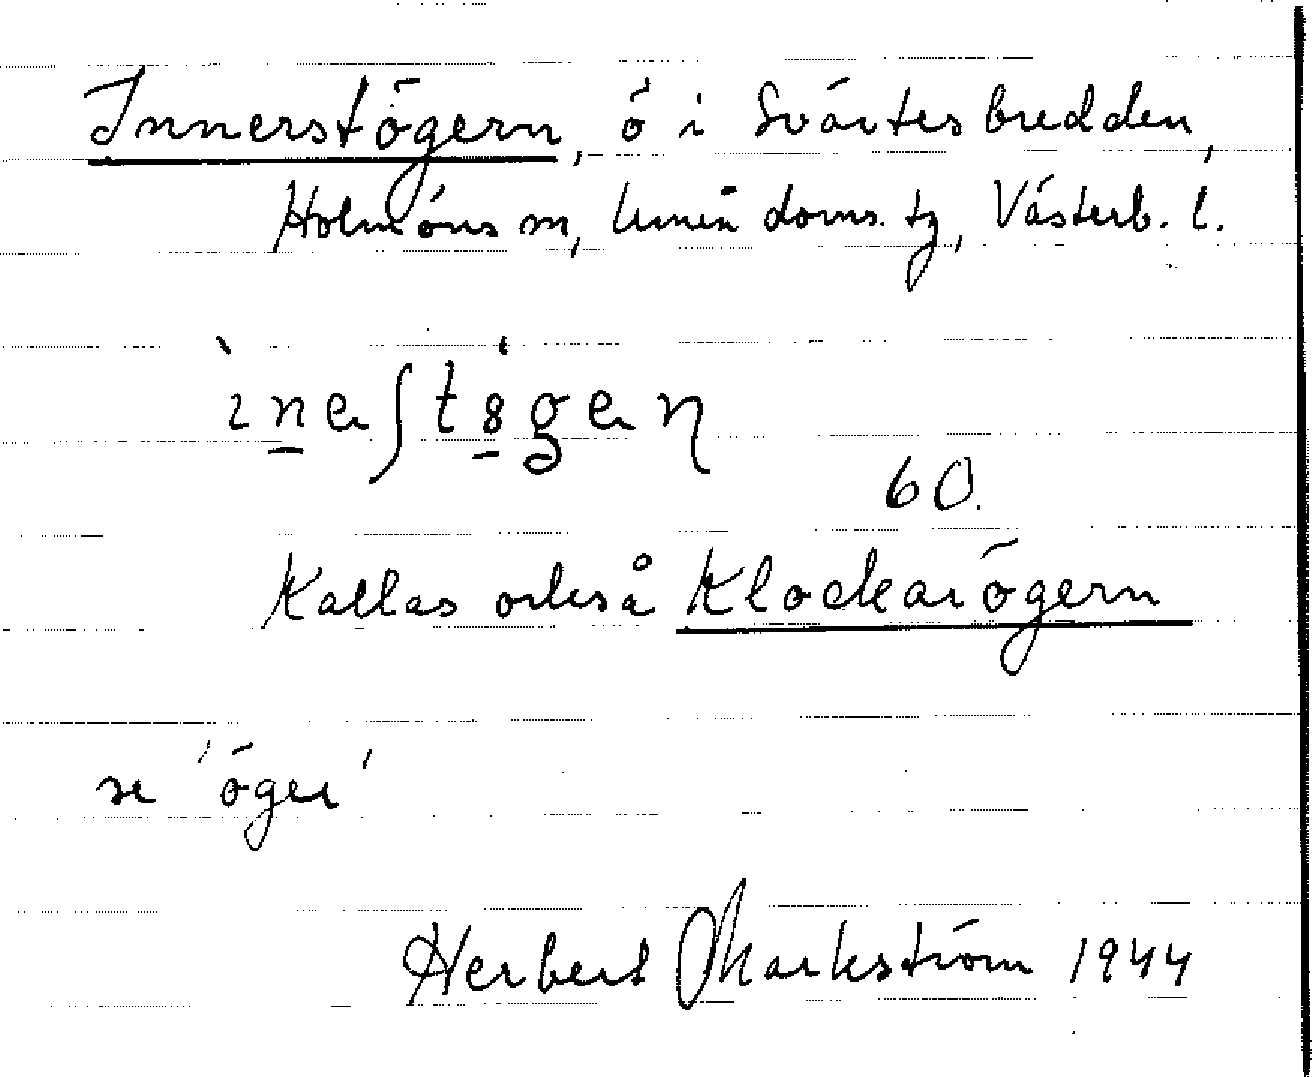 Innerstögern, ö i Svärtesbredden,
Holmöns sn, Umeå doms. tg, Västerb. l.
ìneʃtöge̢n
60.
Kallas också Klockarögern
se 'öger'
Herbert Markström 1944